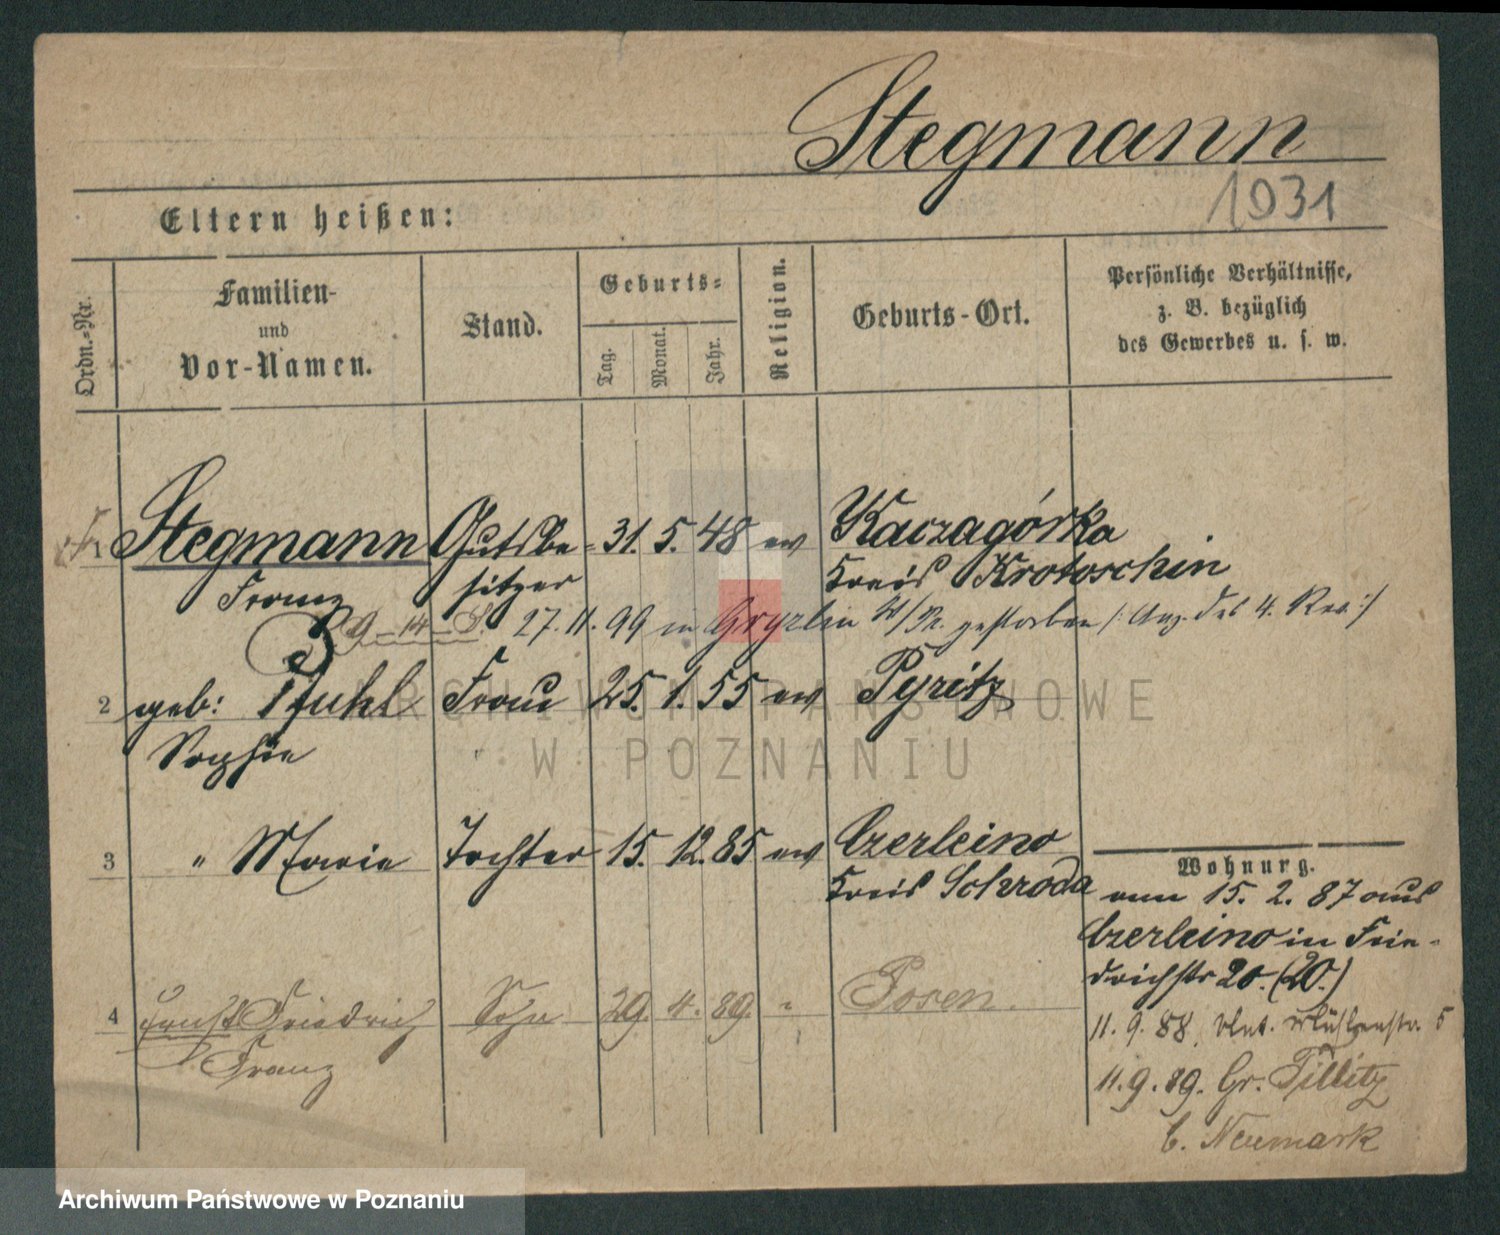 Stegmann
1931
Eltern heißen:
Ordn.-Nr.
Familien-
und
Vor-Namen.
Stand.
Geburts-
Tag.
Monat.
Jahr.
Religion.
Geburts-Ort.
Persönliche Verhältnisse,
z. B. bezüglich
des Gewerbes u. s. w.
1 Stegmann Gutsbe- 31. 5. 48 ev Kaczagórka
Franz sitzer Kreis Krotoschin
27. 11. 99 in Gryzlin W/Pr. gestorben /: Anz. des 4. Rev :/
2 geb: Pfuhl Frau 25. 1. 55 ev Pyritz
Sophie
3 " Marie Tochter 15. 12. 85 ev Czerleino
Kreis Schroda
4 Ernst Friedrich Sohn 29. 4. 89. " Posen.
Franz
Wohnung.
vom 15. 2. 87 aus
Czerleino in Frie-
drichstr 20. (20.)
11. 9. 88. Unt. Mühlenstr. 5
11. 9. 89. Gr. Tillitz
b. Neumark
ARCHIWUM PAŃSTWOWE
W POZNANIU
Archiwum Państwowe w Poznaniu